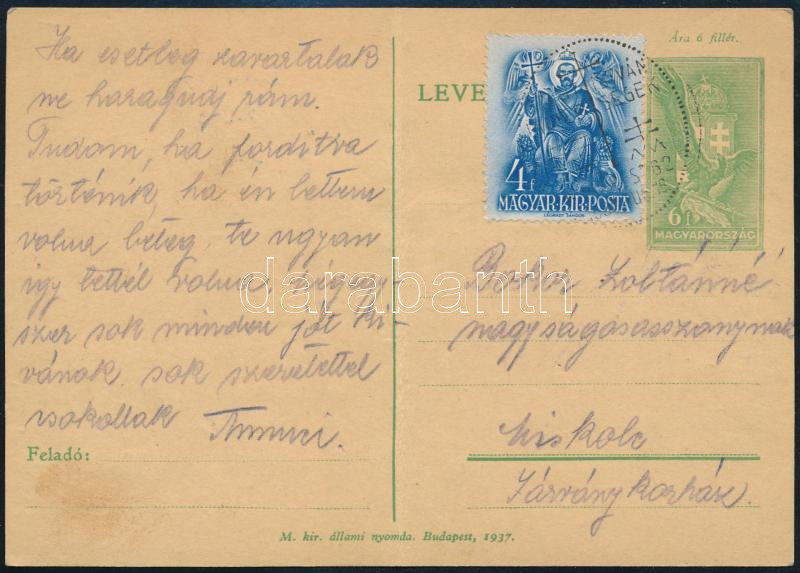 Ha esetleg zavartalak
ne haragudj rám.
Tudom, ha fordítva
történik, ha én lettem
volna beteg, te ugyan
így tettél volna, ezigeny-
szer sok minden jót ki-
vánok sok szeretettel
csókollak
Feladó:
Ára 6 fillér.
LEVE
4f
MAGYAR·KIR·POSTA
LÉGRÁDY SÁNDOR
6f
MAGYARORSZÁG
Bokor Zoltánné
nagyságosasszonynak
Miskolc
Járványkorház.
M. kir. állami nyomda. Budapest, 1937.
darabanth